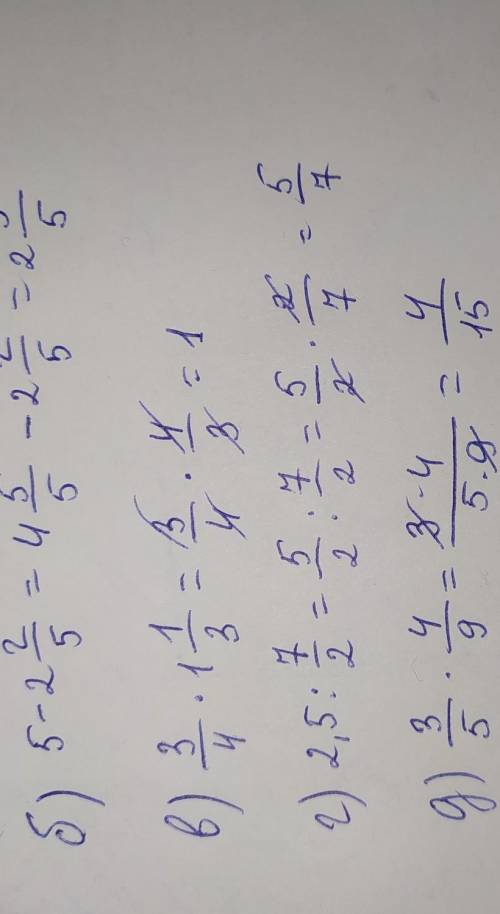 б) 5 - 2 2/5 = 4 5/5 - 2 2/5 = 2 3/5
в) 3/4 · 1 1/3 = 3/4 · 4/3 = 1
г) 2,5 : 7/2 = 5/2 : 7/2 = 5/2 · 2/7 = 5/7
д) 3/5 · 4/9 = 3·4/5·9 = 4/15